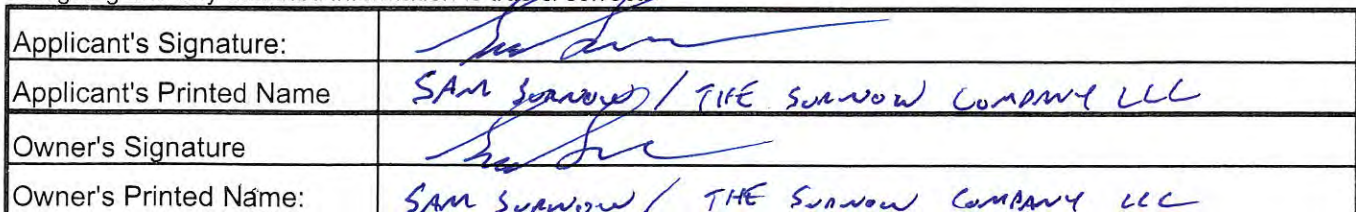 Applicant's Signature:
Applicant's Printed Name SAM SURNOW / THE SURNOW COMPANY LLC
Owner's Signature
Owner's Printed Name: SAM SURNOW / THE SURNOW COMPANY LLC